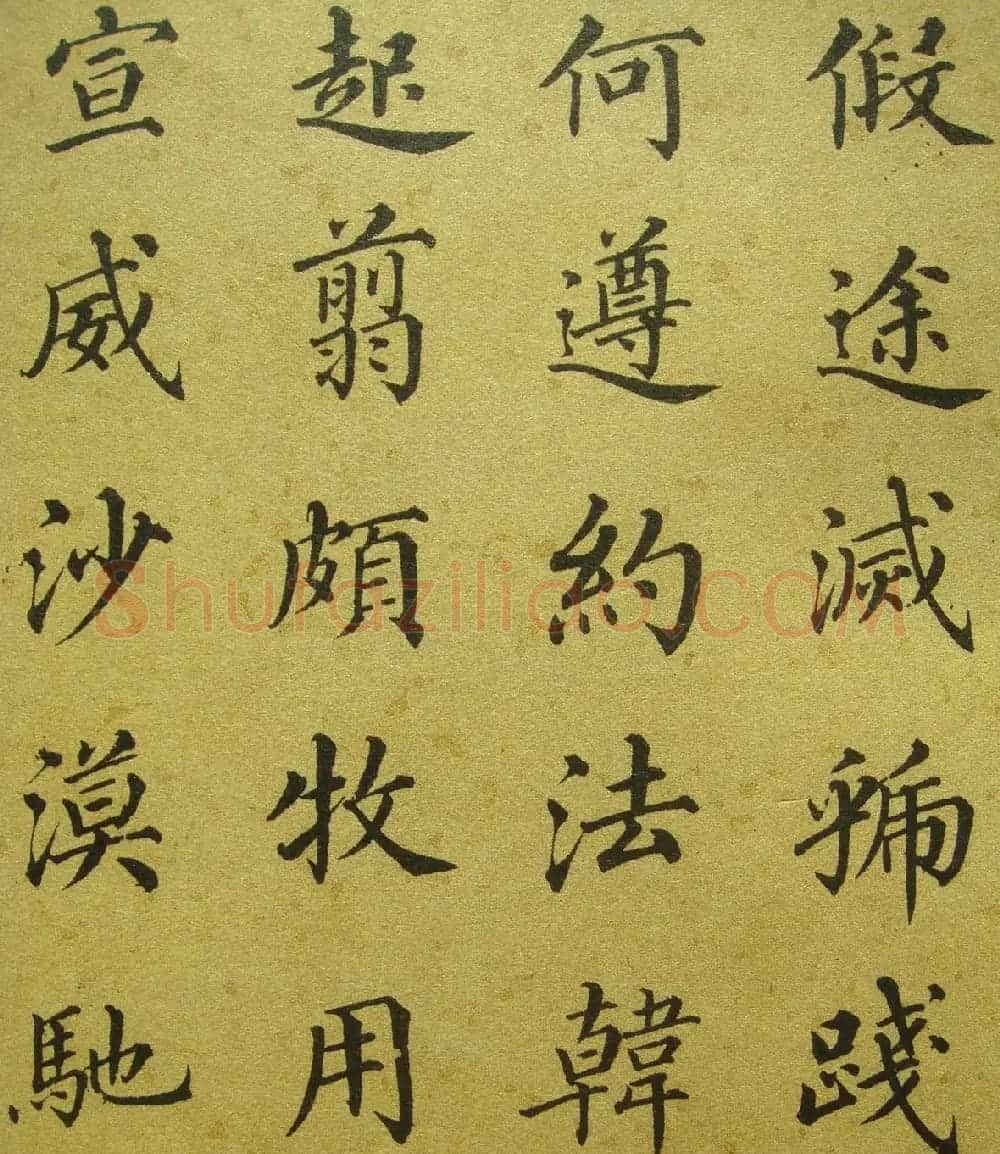 假途滅虢踐
何遵約法韓
起翦頗牧用
宣威沙漠馳
Shufaziliao.COM